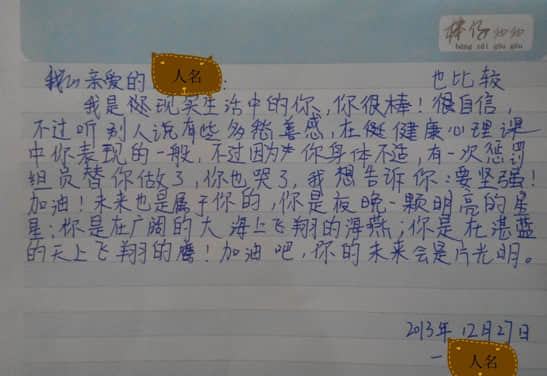 棒仔狗狗
bàng zǎi gǒu gǒu
我的亲爱的 人名 :
也比较
我是你现实生活中的你,你很棒!很自信,
不过听别人说有些多愁善感,在健康心理课
中你表现的一般,不过因为你身体不适,有一次惩罚
组员替你做了,你也哭了,我想告诉你:要坚强!
加油!未来也是属于你的,你是夜晚一颗明亮的星
星;你是在广阔的大海上飞翔的海燕;你是在湛蓝
的天上飞翔的鹰!加油吧,你的未来会是片光明。
2013年12月27日
一 人名